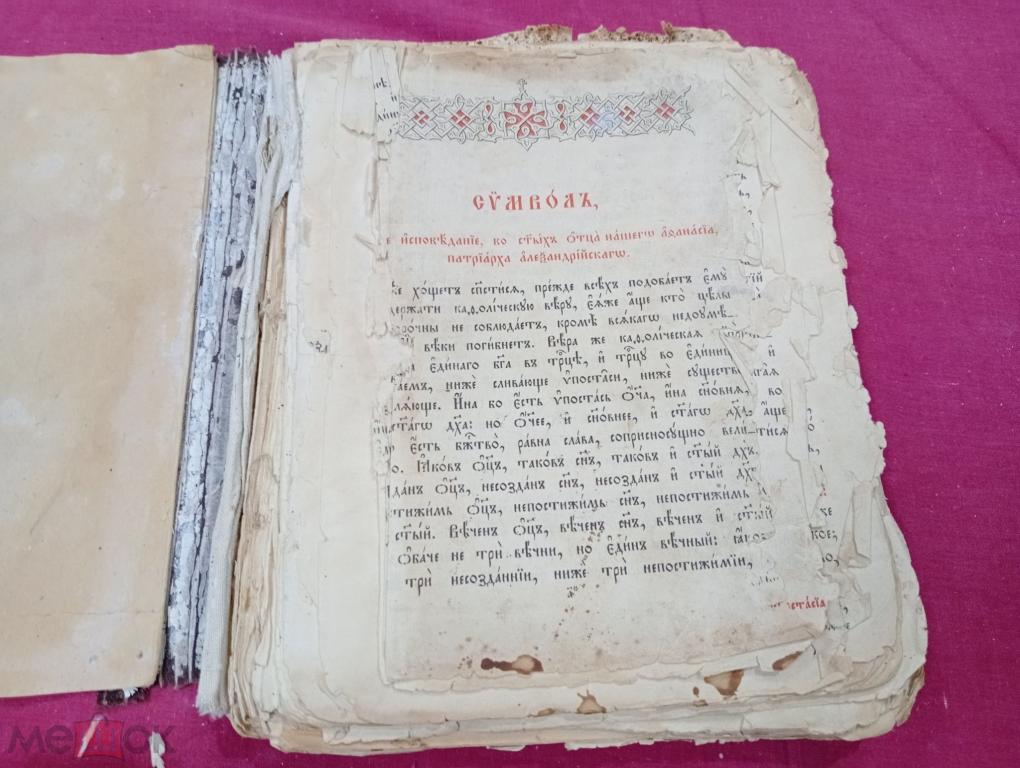 СѶМВО́ЛЪ,
и҆сповѣ́данїе, во ст҃ы́хъ ѻ҆тца̀ на́шегѡ а҆ѳана́сїа,
патрїа́рха а҆леѯандрі́йскагѡ.
хо́щетъ сп҃сти́сѧ, пре́жде всѣ́хъ подоба́етъ є҆мꙋ̀
держати каѳолі́ческую вѣ́рꙋ, є҆ѧ́же а҆́ще кто̀ цѣ́лы
не соблюда́етъ, кромѣ̀ всѧ́кагѡ недоꙋмѣ-
вѣ́ки поги́бнетъ. Вѣ́ра же каѳолі́ческаѧ
є҆ди́наго бг҃а въ трⷪ҇цѣ, и҆ трⷪ҇цꙋ во є҆дини
нижѐ слива́юще ѵ҆поста̑си, нижѐ сꙋщество̀
И҆́на бо є҆́сть ѵ҆поста́сь ѻ҆́ч҃а, и҆́на сн҃о́внѧ,
ст҃а́гѡ дх҃а: но ѻ҆́ч҃ее, и҆ сн҃о́внее, и҆ ст҃а́гѡ дх҃а,
є҆́сть бж҃ество̀, ра́вна сла́ва, соприсносꙋ́щно
ѻ҆ц҃ъ, тако́въ сн҃ъ, тако́въ и҆ ст҃ы́й дх҃ъ.
ѻ҆ц҃ъ, несозда́нъ сн҃ъ, несозда́нъ и҆ ст҃ы́й дх҃ъ
ѻ҆ц҃ъ, непостижи́мь сн҃ъ, непостижи́мь
ст҃ы́й. Вѣ́ченъ ѻ҆ц҃ъ, вѣ́ченъ сн҃ъ, вѣ́ченъ и҆ ст҃ы́й
Ѻ҆ба́че не трѝ вѣ́чни, но є҆ди́нъ вѣ́чный:
трѝ несозда́ннїи, нижѐ трѝ непостижи́мїи,
мешок